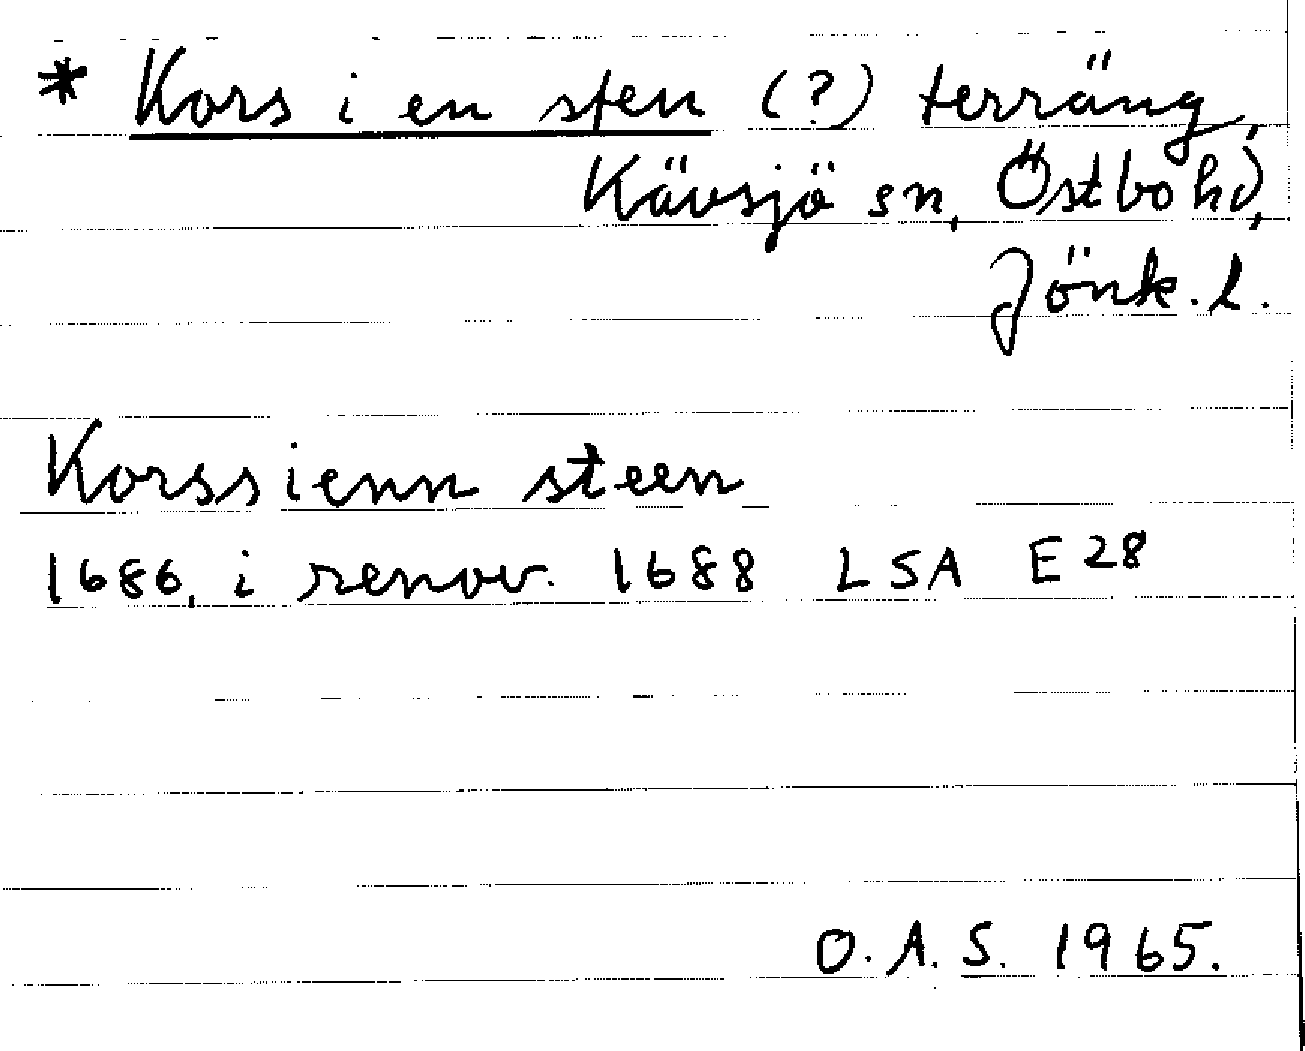 * Kors i en sten (?) terräng,
Kävsjö sn, Östbo hd,
Jönk. l.
Korss ienn steen
1686, i renov. 1688 LSA E28
O. A. S. 1965.